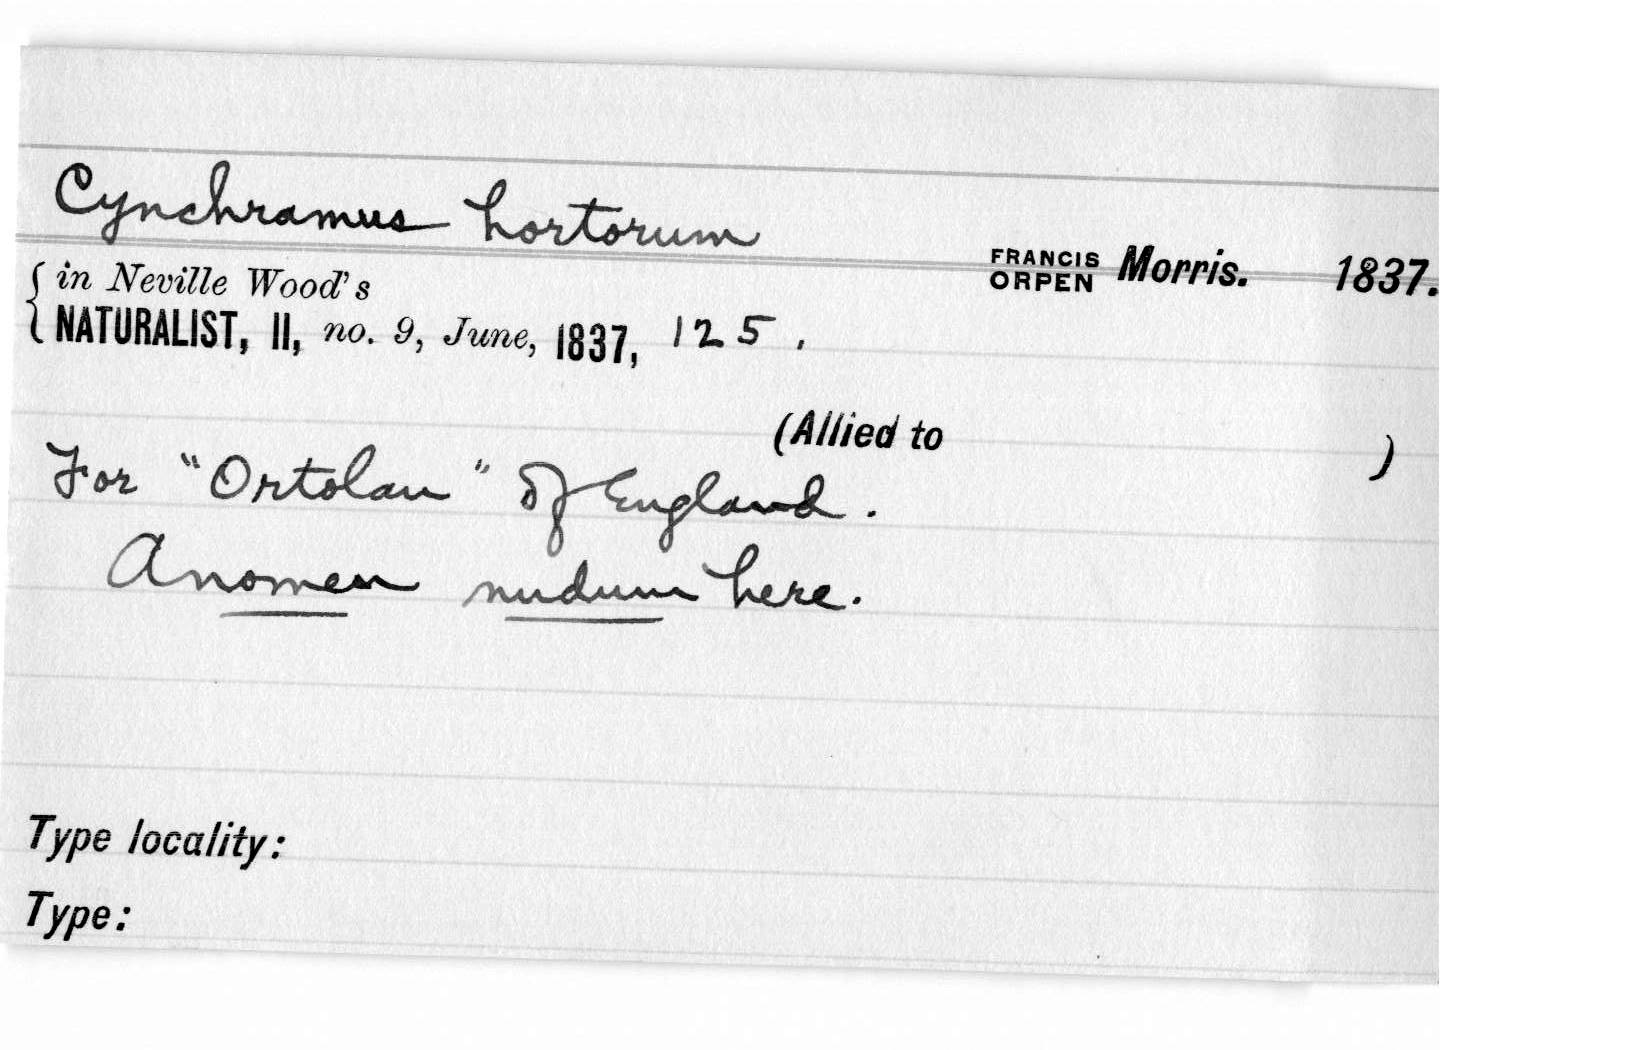 Cynchramus hortorum
FRANCIS ORPEN Morris. 1837.
in Neville Wood's
NATURALIST, II, no. 9, June, 1837, 125.
(Allied to )
For "Ortolan" of England.
A nomen nudum here.
Type locality:
Type: